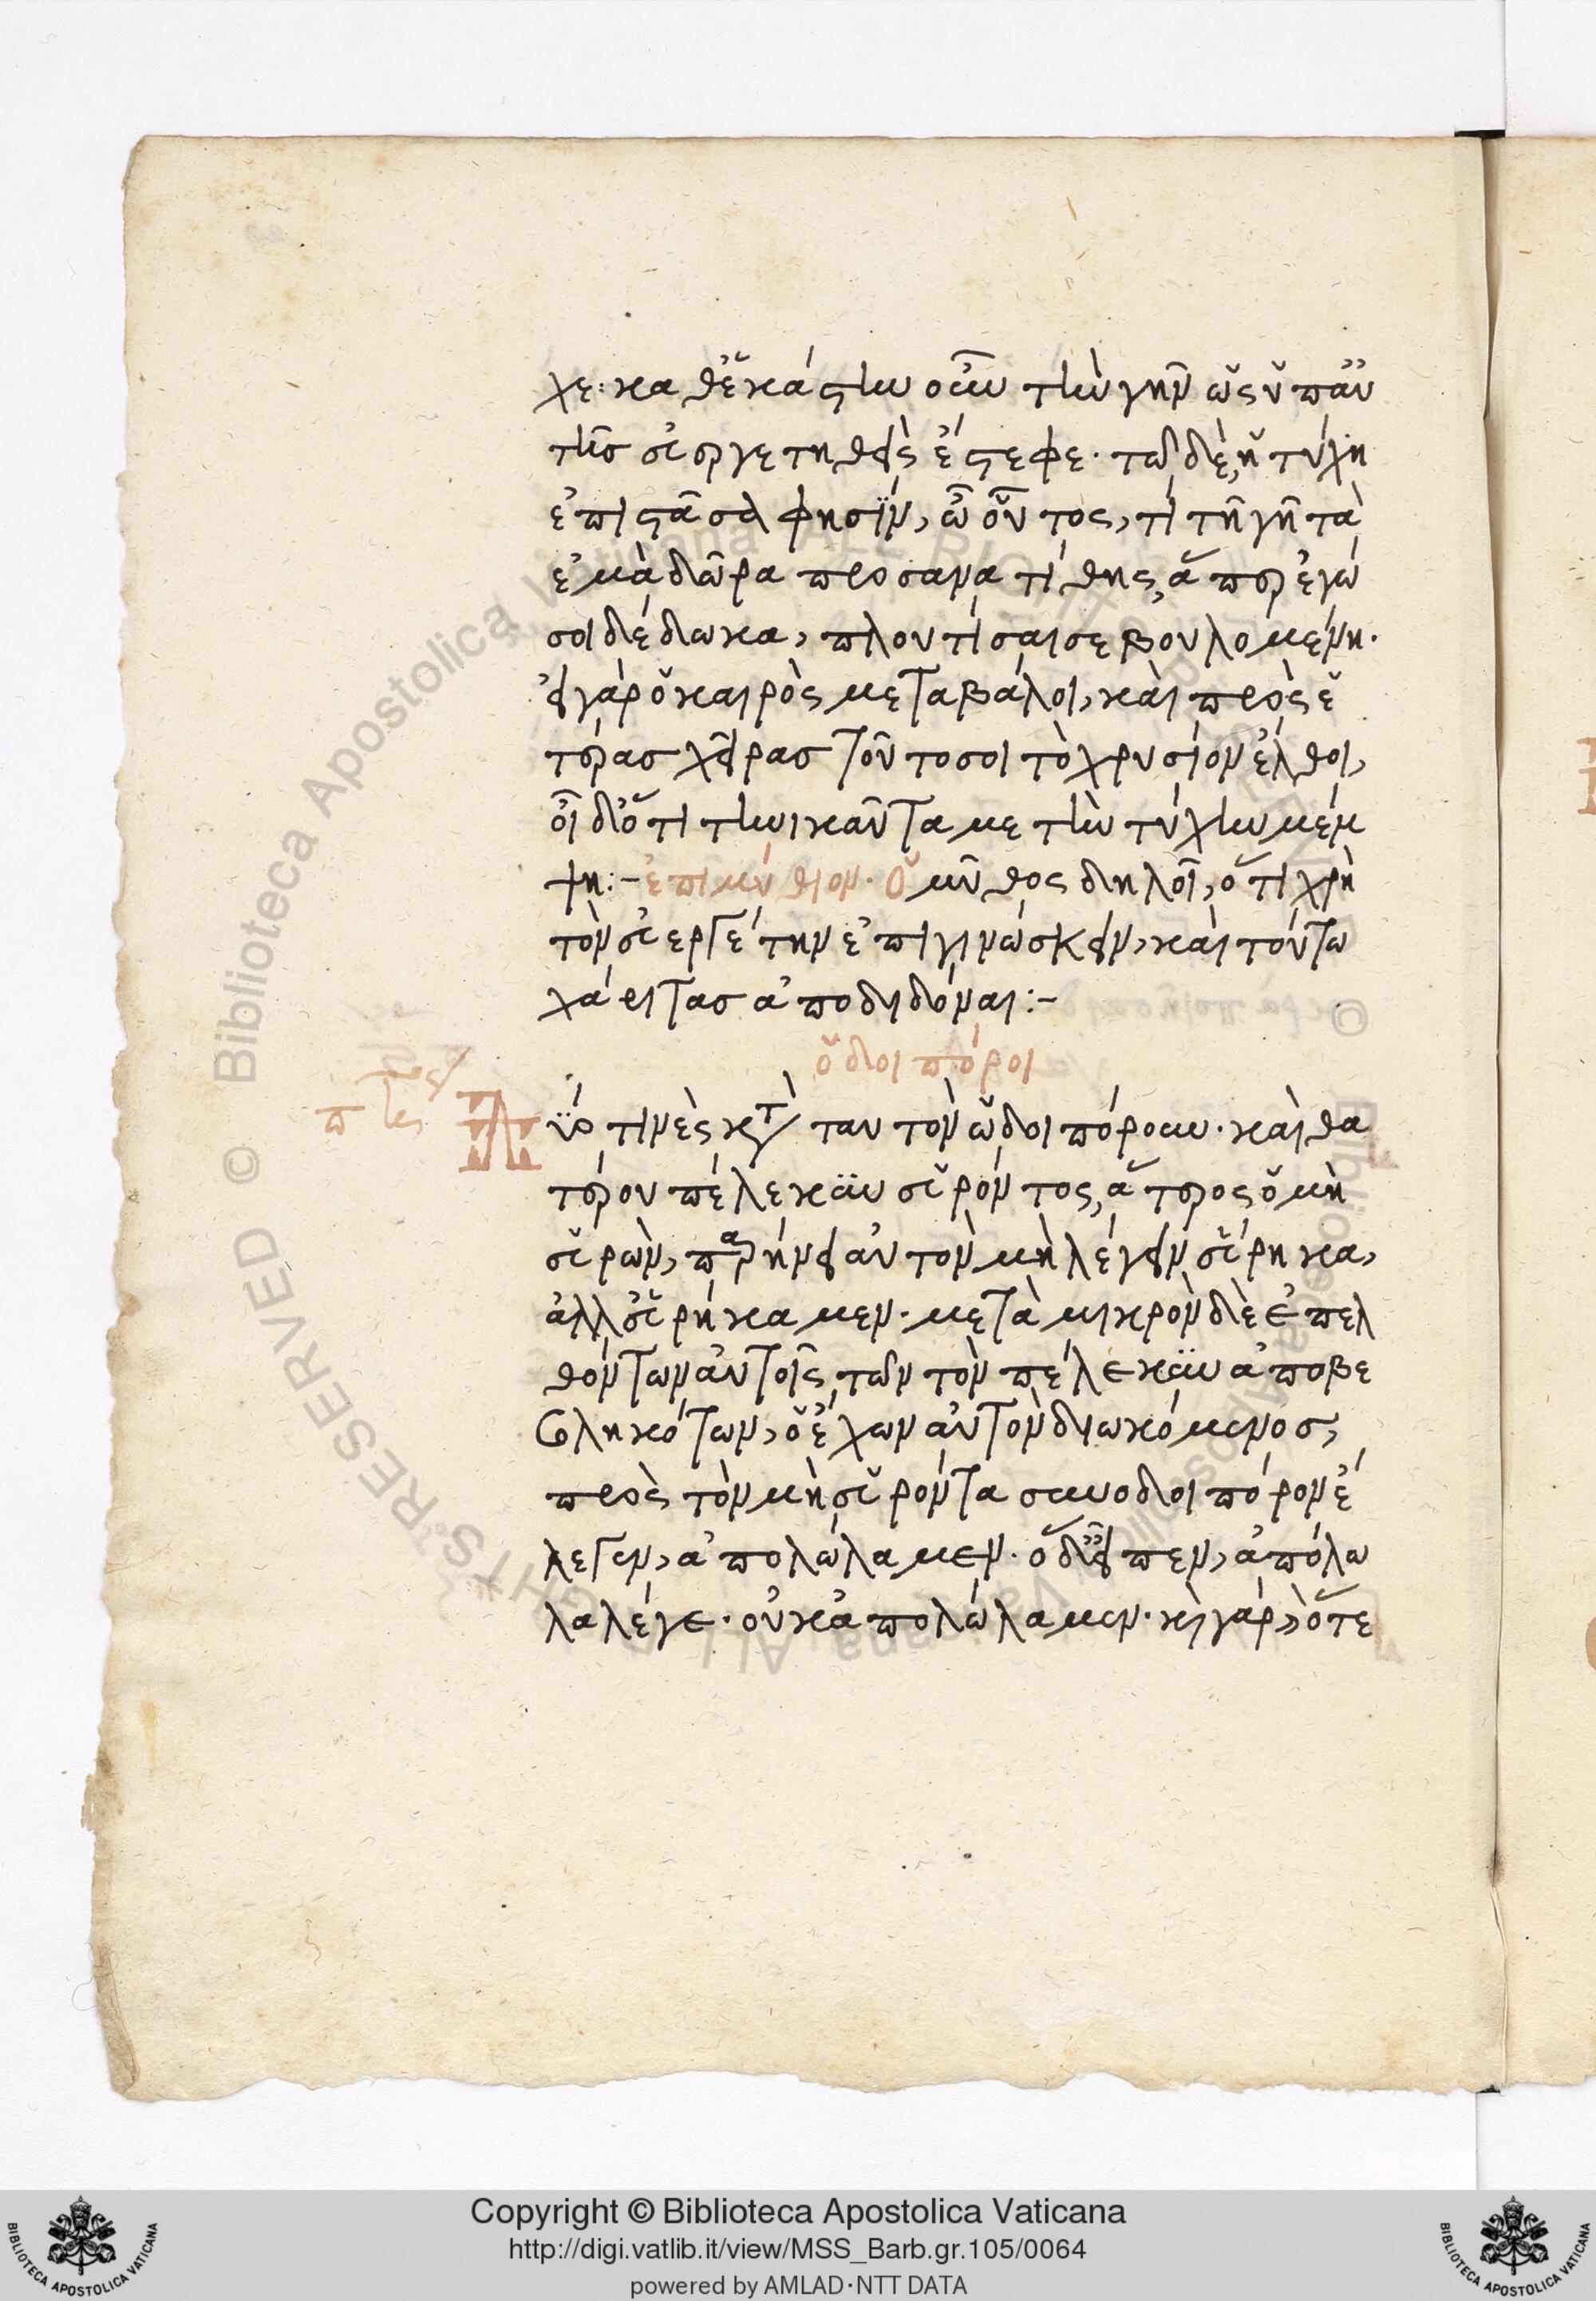 χε: καθ' ἑκάστην οὖν τὴν γῆν ὡς ὑπ' αὐ
τῆς εὐεργετηθεὶς ἔστεφε. τῷ δὲ, ἡ τύχη
ἐπιστᾶσα φησὶν, ὦ οὗτος, τί τῆ γῆ τὰ
ἐμὰ δῶρα προσανατίθης, ἅπερ ἐγώ
σοι δέδωκα, πλουτίσαι σε βουλομένη.
εἰ γὰρ ὁ καιρὸς μεταβάλοι, καὶ πρὸς ἑ
τέρας χεῖρας τοῦτο σοι τὸ χρυσίον ἔλθοι,
οἶδ' ὅτι τηνικαῦτα με τὴν τύχην μέμ
ψη:- ἐπιμύθιον. Ὁ μῦθος δηλοῖ, ὅτι χρὴ
τὸν εὐεργέτην ἐπιγινώσκειν, καὶ τούτω
χάριτας ἀποδιδόναι:-
ὁδοιπόροι
Δύο τινὲς κατὰ ταυτὸν ὡδοιπόρουν. καὶ θα
τέρου πέλεκυν εὑρόντος, ἅτερος ὁ μὴ
εὑρὼν, παρήνει αὐτὸν μὴ λέγειν εὕρηκα,
ἀλλ' εὑρήκαμεν. μετὰ μικρὸν δὲ ἐπελ
θόντων αὐτοῖς, τῶν τὸν πέλεκυν ἀποβε
βληκότων, ὁ ἔχων αὐτὸν διωκόμενος,
πρὸς τὸν μὴ εὑρόντα συνοδοιπόρον ἔ
λεγεν, ἀπολώλαμεν. ὁ δὲ εἶπεν, ἀπόλω
λα λέγε. οὐκ ἀπολώλαμεν. καὶ γὰρ, ὅτε
Copyright © Biblioteca Apostolica Vaticana
http://digi.vatlib.it/view/MSS_Barb.gr.105/0064
powered by AMLAD·NTT DATA